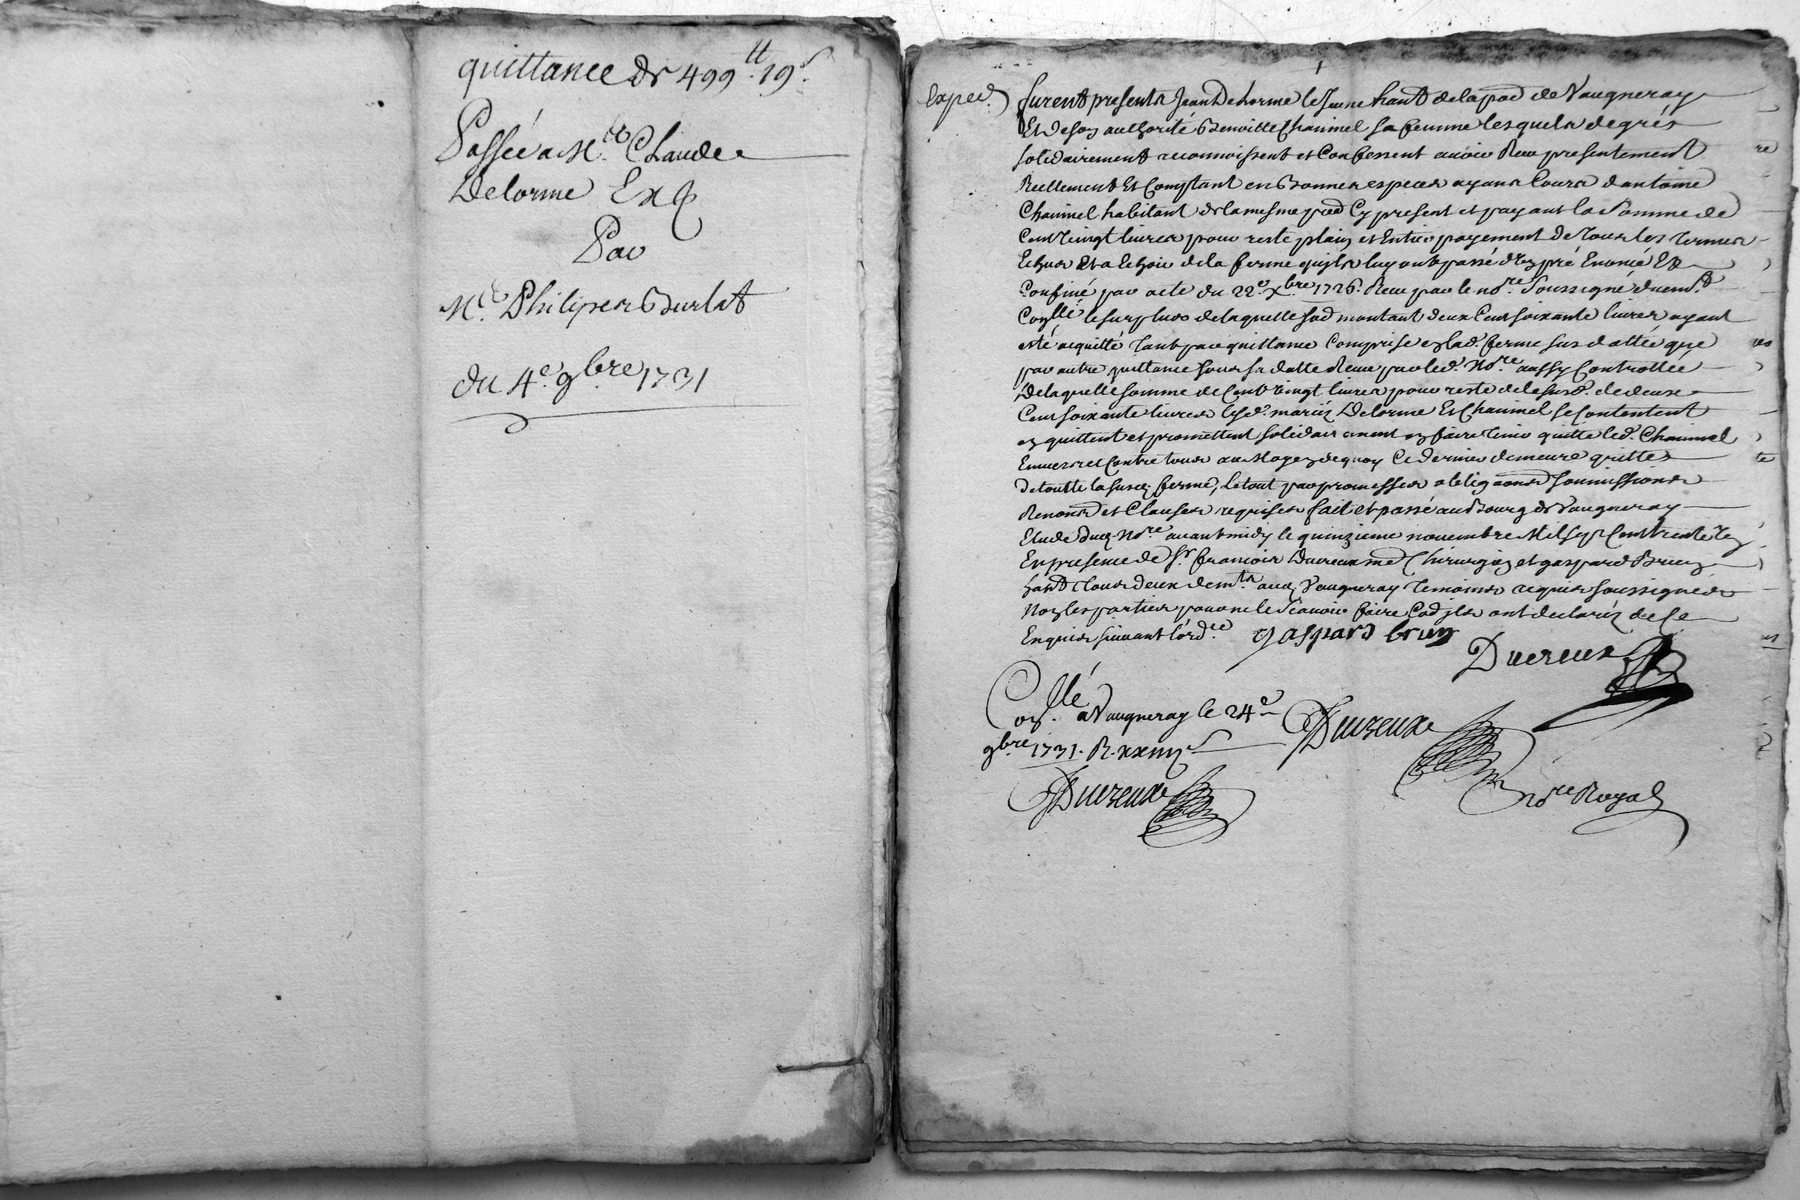 quittance de 499 tt. 19 s.
Passée a Me Claude
Delorme Exp
Par
Me. Philiper Burlat
du 4e. 9bre 1731
Exped.
furent presents Jean Delorme le Jeune habt de la par de Vaugneray
Et de son authorité Benoitte Chaninel sa femme lesquels de grés
solidairement reconnoissent et Confessent avoir Receu presentement
Reellement Et Comptant en Bonnes especes ayans Cours d'antoine
Chaninel habitant de la mesme par Cy present et payant la Somme de
Cent vingt livres pour reste plain et Entier payement de tous les termes
Echus Et a Echoir de la ferme qu'ils luy ont passé d'un pré Enoncé Et
Confiné par acte du 22e. Xbre 1726. Receu par le nore. soussigné duemt
Conllé le surplus de laquelle sad montant deux Cent soixante livres ayant
esté acquitté tant par quittance Comprise en lad. ferme sus dattée que
par autre quittance sous sa datte Receue par led. Nore aussy Controllée
De laquelle somme de Cent vingt livres pour reste de le susd. de deux
Cent soixante livres lesd. mariés Delorme Et Chaninel se Contentent
en quittent et promettent solidairement en faire tenir quitte led. Chaninel
Envers et Contre tous au Moyen de quoy Ce dernier demeure quitte
de toutte la susd. ferme, le tout par promesses obligaons soumissions
Renons et Clauses requises fait et passé au Bourg de Vaugneray
Etude dud. Nore avant midy le quinzieme novembre Mil sept Cent trente Un
En presence de sr francois Ducreux me Chirurgien et gaspard Brun
habt tous deux demts aud. Vaugneray temoins requis soussignés
Non les parties pour ne le scavoir faire Co ils ont declaré de Ce
Enquis suivant l'ordce
gaspard brun
Ducreux
Conllé a Vaugneray le 24e
9bre 1731. R. xxiiij s
Ducreux
Ducreux
nore Royal